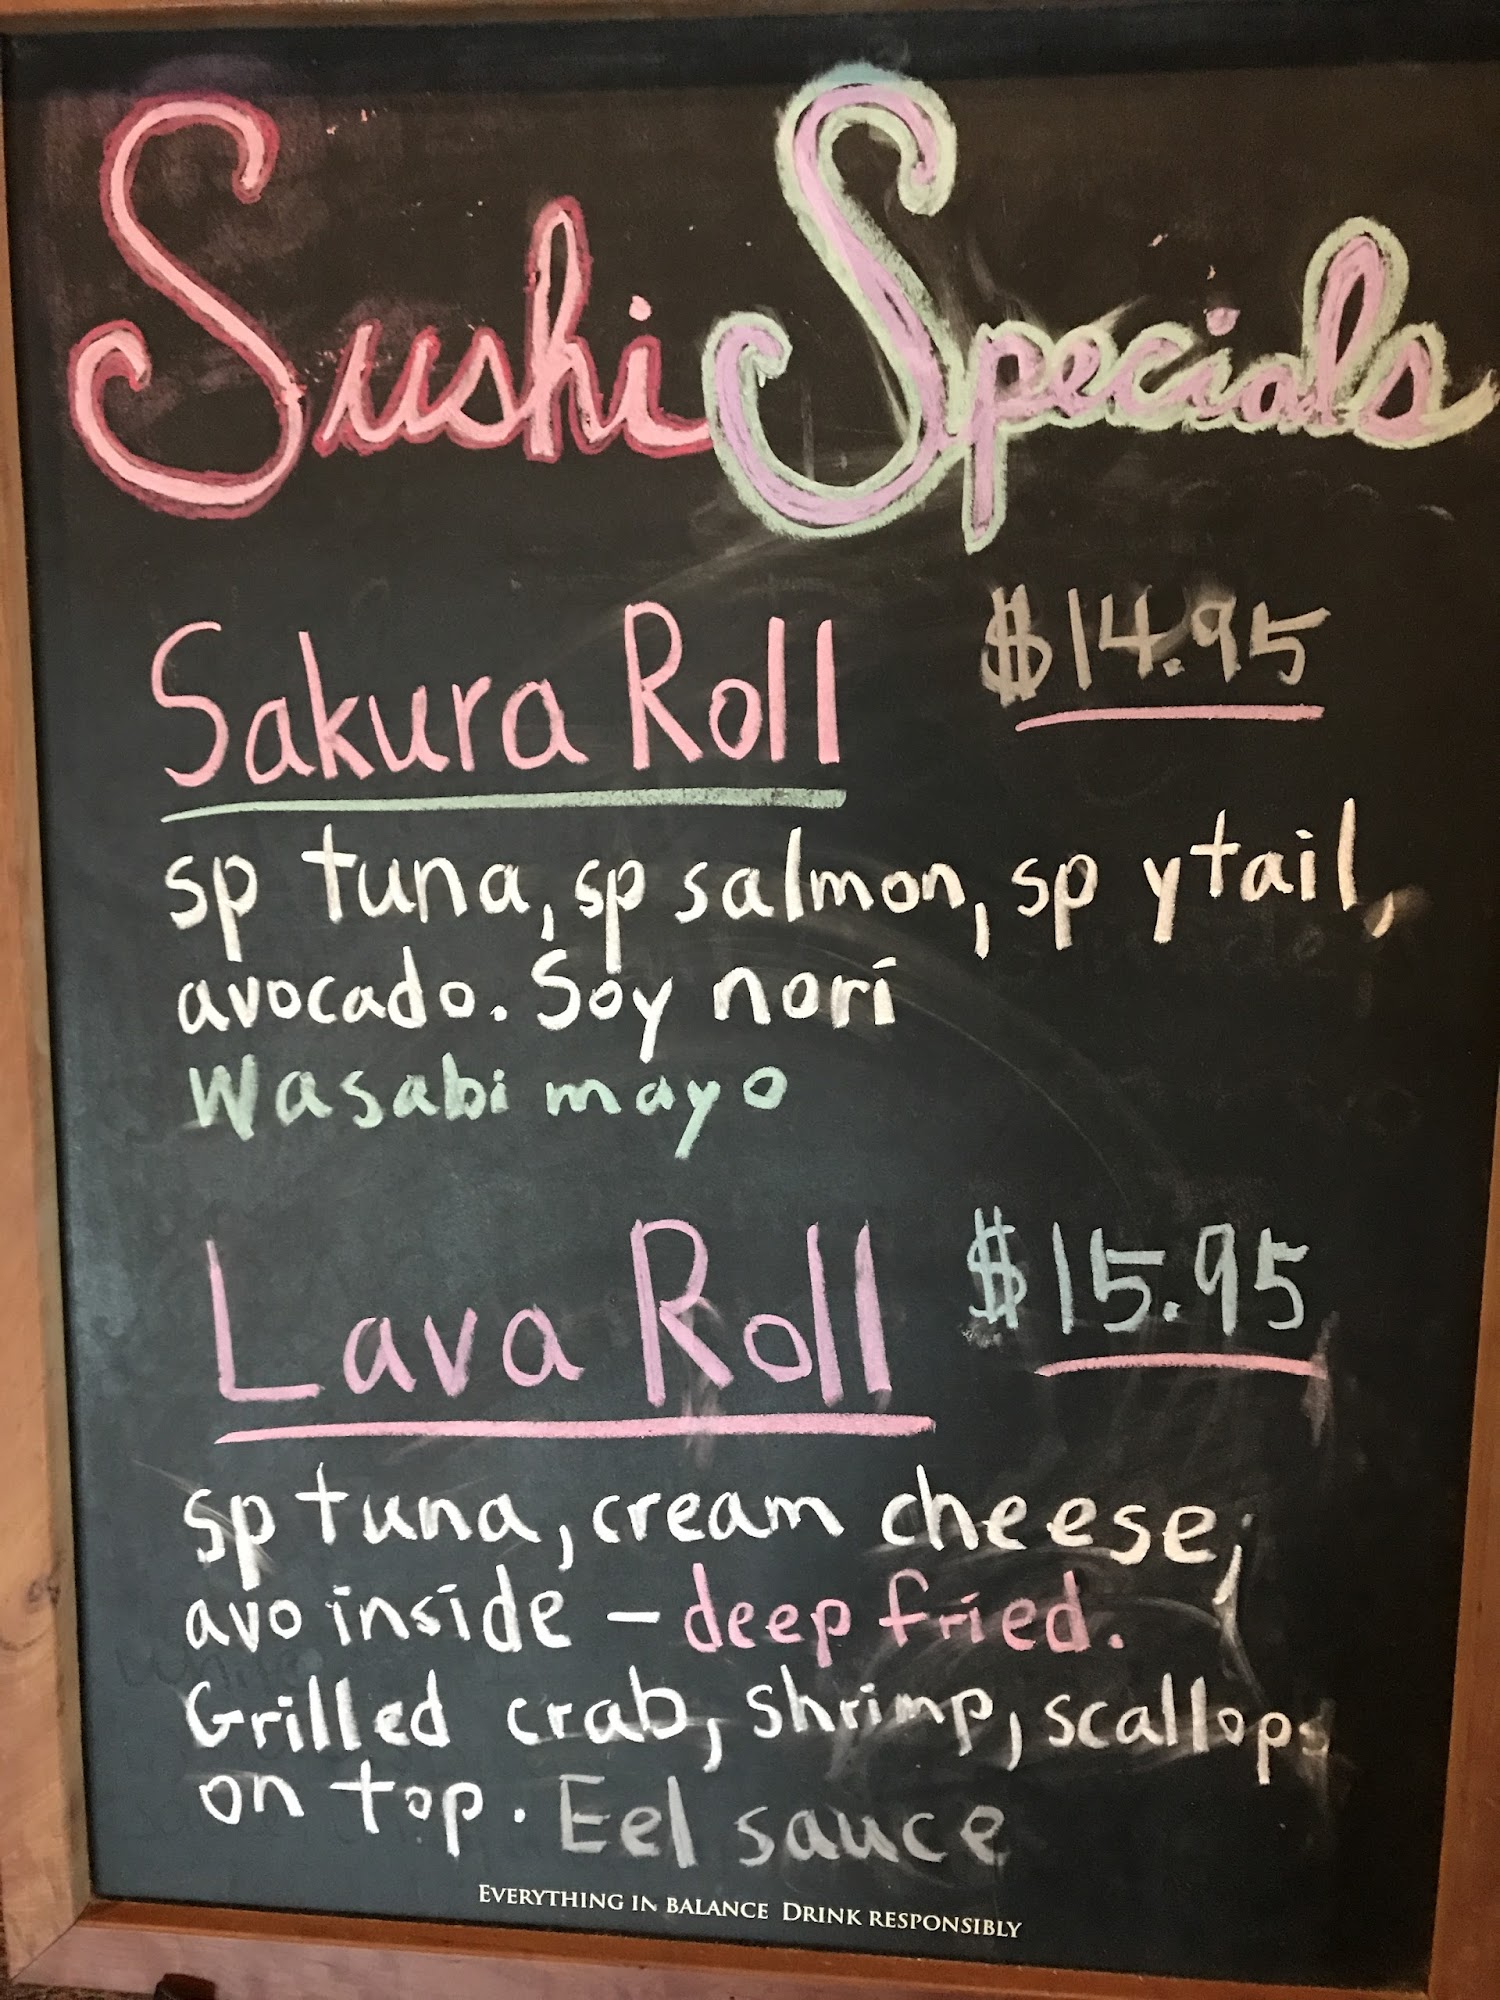 Sushi Specials
Sakura Roll $14.95
sp tuna, sp salmon, sp ytail,
avocado. Soy nori
Wasabi mayo
Lava Roll $15.95
sp tuna, cream cheese,
avo inside - deep fried.
Grilled crab, shrimp, scallops
on top. Eel sauce
EVERYTHING IN BALANCE DRINK RESPONSIBLY